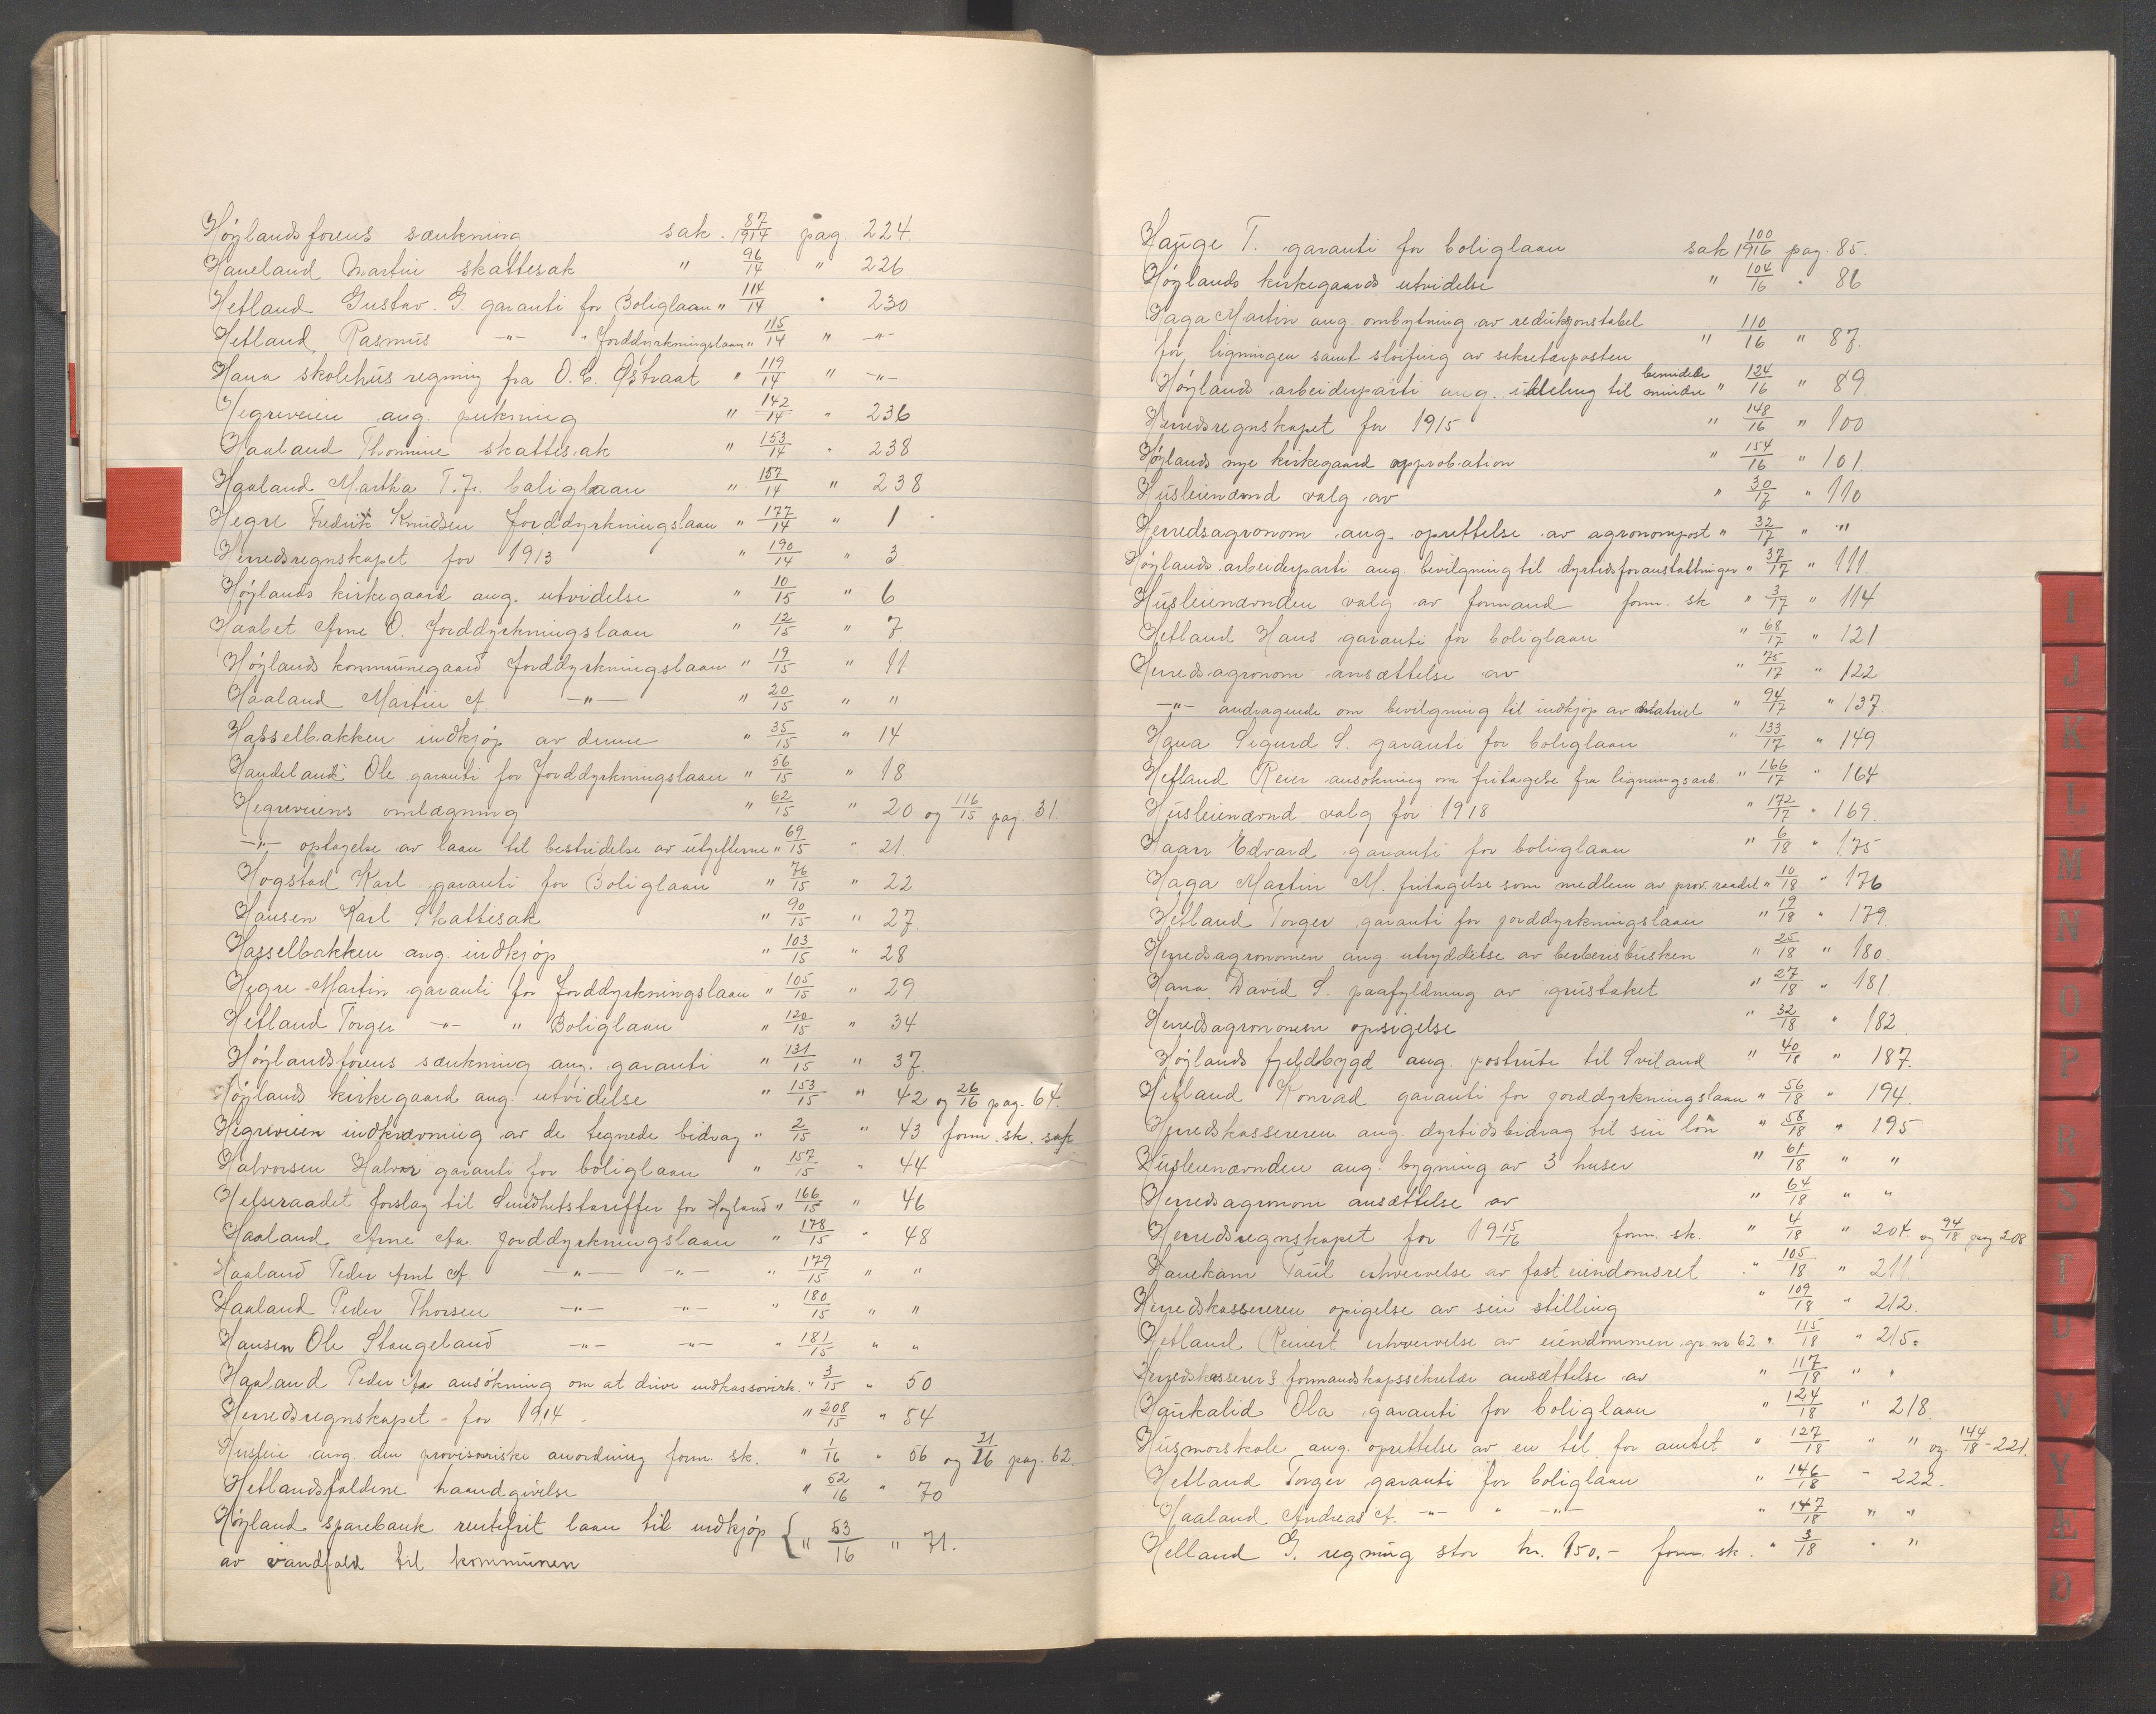 Höylandsforens sænkning sak. 87/1914 pag. 224.
Haneland Martin skattesak " 96/14 " 226
Hetland Gustav. G. garanti for Boliglaan " 114/14 " 230
Hetland Rasmus -"- " Jorddyrkningslaan " 115/14 " -"-
Hana skolehus regning fra O. C. Östraat " 119/14 " -"-
Hegreveien ang. pukning " 142/14 " 236
Haaland Thomine skattesak " 153/14 " 238
Haaland Martha T. Jr. boliglaan " 157/14 " 238
Hegre Fredrik Knudsen Jorddyrkningslaan " 177/14 " 1
Herredsregnskapet for 1913 " 190/14 " 3
Höylands kirkegaard ang. utvidelse " 10/15 " 6
Haabet Arne O. Jorddyrkningslaan " 12/15 " 7
Höylands kommunegaard Jorddyrkningslaan " 19/15 " 11
Haaland Martin A. -"- " 20/15 " "
Hasselbakken indkjøp av denne " 35/15 " 14
Handeland Ole garanti for Jorddyrkningslaan " 56/15 " 18
Hegreveiens omlægning " 62/15 " 20 og 116/15 pag. 31.
-"- optagelse av laan til bestridelse av utgifterne " 69/15 " 21.
Hogstad Karl garanti for Boliglaan " 76/15 " 22
Hansen Karl Skattesak " 90/15 " 27
Hasselbakken ang. indkjøp " 103/15 " 28
Hegre Martin garanti for Jorddyrkningslaan " 105/15 " 29
Hetland Torger -"- " Boliglaan " 120/15 " 34
Höylandsforens sænkning ang. garanti " 131/15 " 37
Höylands kirkegaard ang. utvidelse " 153/15 " 42 og 26/16 pag. 64.
Hegreveien indkrævning av de tegnede bidrag " 2/15 " 43 form. sk. sak
Halvorsen Halvor garanti for boliglaan " 157/15 " 44
Helseraadet forslag til Sundhetstariffer for Høyland " 166/15 " 46
Haaland Arne Aa. Jorddyrkningslaan " 178/15 " 48
Haaland Peder Arnt A. -"- -"- " 179/15 " "
Haaland Peder Thorsen -"- -"- " 180/15 " "
Hansen Ole Stangeland -"- -"- " 181/15 " "
Haaland Peder Aa ansökning om at drive indkassovirk. " 3/15 " 50
Herredsregnskapet for 1914 " 208/15 " 54
Husleie ang. den provisoriske anordning form. sk. " 1/16 " 56 og 21/16 pag. 62.
Hetlandsfaldene haandgivelse " 52/16 " 70
Höyland sparebank rentefrit laan til indkjøp { " 53/16 " 71.
av vandfald til kommunen
Hauge T. garanti for boliglaan sak 100/1916 pag. 85.
Höylands kirkegaards utvidelse " 104/16 " 86
Haga Martin ang. ombytning av reduksjonstabel
for ligningen samt sløifing av sekretærposten " 110/16 " 87.
Höylands arbeiderparti ang. utdeling til mindre bemidlede " 124/16 " 89
Herredsregnskapet for 1915 " 148/16 " 100
Höylands nye kirkegaard approbation " 154/16 " 101.
Husleienævnd valg av " 30/17 " 110
Herredsagronom ang. oprettelse av agronompost " 32/17 " "
Höylands arbeiderparti ang. bevilgning til dyrtidsforanstaltninger " 37/17 " 111
Husleienævnden valg av formand form. sk " 3/17 " 114
Hetland Hans garanti for boliglaan " 68/17 " 121
Herredsagronom ansættelse av " 75/17 " 122
-"- andragende om bevilgning til indkjøp av materiel " 94/17 " 137.
Hana Sigurd S. garanti for boliglaan " 133/17 " 149
Hetland Reier ansökning om fritagelse fra ligningsarb. " 166/17 " 164
Husleienævnd valg for 1918 " 172/17 " 169.
Haarr Edvard garanti for boliglaan " 6/18 " 175
Haga Martin M. fritagelse som medlem av prov. raadet " 10/18 " 176
Hetland Torger garanti for jorddyrkningslaan " 19/18 " 179.
Herredsagronomen ang. utryddelse av berberisbusken " 25/18 " 180.
Hana David S. paafyldning av grustaket " 27/18 " 181
Herredsagronomen opsigelse " 32/18 " 182
Höylands fjeldbygd ang. postrute til Sviland " 40/18 " 187.
Hetland Konrad garanti for jorddyrkningslaan " 56/18 " 194.
Herredskassereren ang. dyrtidsbidrag til sin løn " 58/18 " 195
Husleienævnden ang. bygning av 3 huser " 61/18 " "
Herredsagronom ansættelse av " 64/18 " "
Herredsregnskapet for 1915/16 form. sk. " 4/18 " 204. og 94/18 pag 208
Hanekam Paul erhvervelse av fast eiendomsret " 105/18 " 211
Herredskassereren opigelse av sin stilling " 109/18 " 212.
Hetland Reinert erhvervelse av eiendommen gr. nr 62 " 115/18 " 215.
Herredskasserer & formandskapssekretær ansættelse av " 117/18 " "
Haukalid Ola garanti for boliglaan " 124/18 " 218
Husmorskole ang. oprettelse av en til for amtet " 127/18 " " og 144/18 - 221.
Hetland Torger garanti for boliglaan " 146/18 - 222.
Haaland Andreas A. -"- " -"- " 147/18 " "
Helland G. regning stor kr. 150.- form. sk. " 3/18 " "
I
J
K
L
M
N
O
P
R
S
T
U
V
Y
Æ
Ø